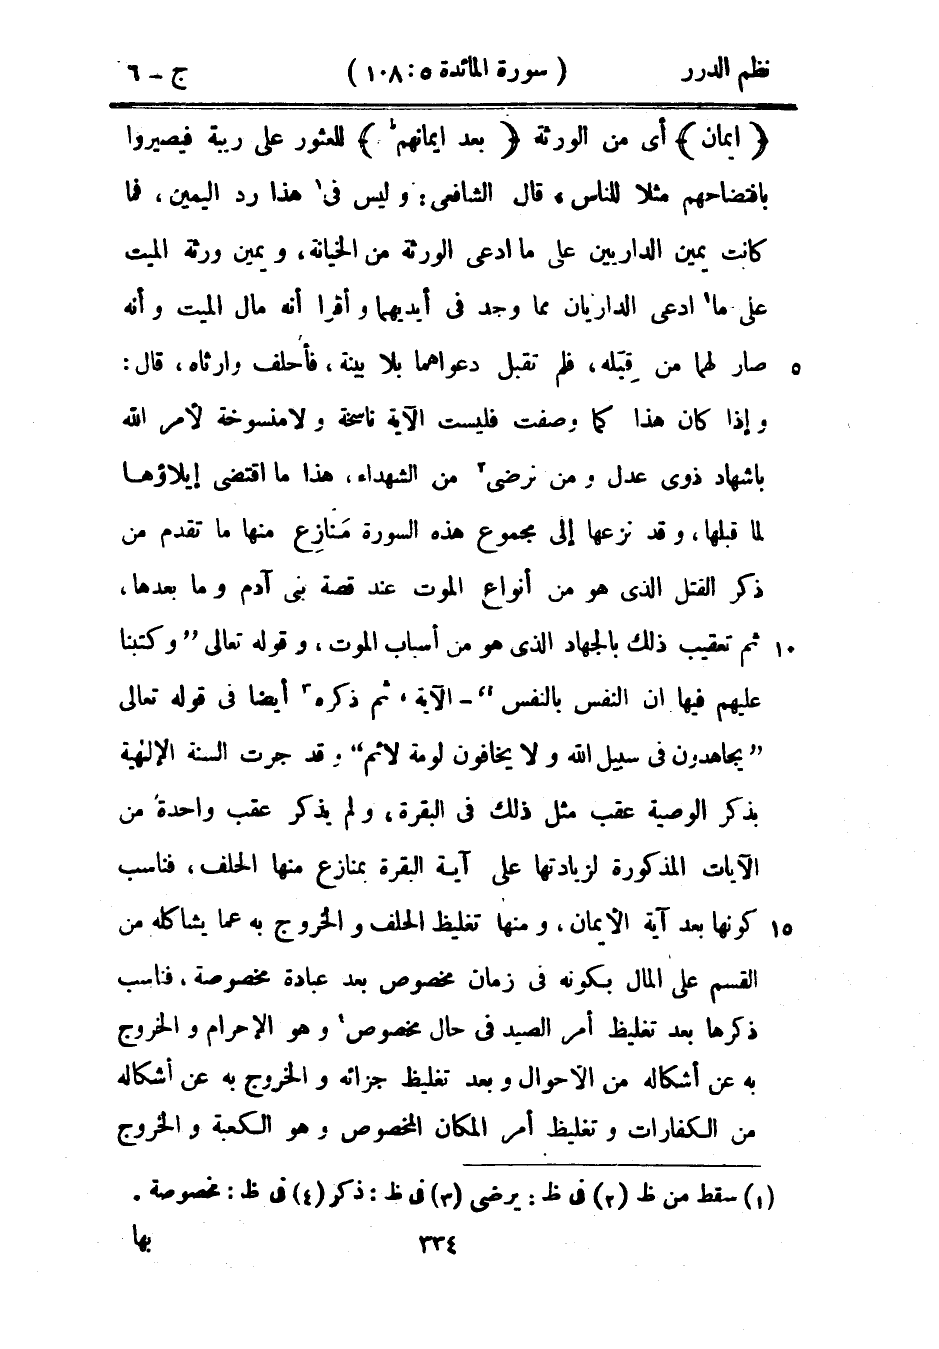 نظم الدرر ( سورة المائدة ٥ : ١٠٨ ) ج - ٦
﴿ ايمان ﴾ أى من الورثة ﴿ بعد ايمانهم ط ﴾ للعثور على ريبة فيصيروا
بافتضاحهم مثلا للناس ، قال الشافعى : و ليس فى١ هذا رد اليمين ، فما
كانت يمين الداريين على ما ادعى الورثة من الخيانة ، و يمين ورثة الميت
على ما١ ادعى الداريان مما وجد فى أيديهما و أقرا أنه مال الميت و أنه
صار لهما من قِبَله ، فلم تقبل دعواهما بلا بينة ، فأُحلف وارثاه ، قال : ٥
و إذا كان هذا كما وصفت فليست الآية ناسخة و لا منسوخة لأمر الله
باشهاد ذوى عدل و من نرضى٢ من الشهداء ، هذا ما اقتضى إيلاؤهـا
لما قبلها ، و قد نزعها إلى مجموع هذه السورة مَنازِع منها ما تقدم من
ذكر القتل الذى هو من أنواع الموت عند قصة بنى آدم و ما بعدها ،
ثم تعقيب ذلك بالجهاد الذى هو من أسباب الموت ، و قوله تعالى ” و كتبنا ١٠
عليهم فيها ان النفس بالنفس “ - الآية ، ثم ذكره٣ أيضا فى قوله تعالى
” يجاهدون فى سبيل الله و لا يخافون لومة لائم “ و قد جرت السنة الإلهية
بذكر الوصية عقب مثل ذلك فى البقرة ، و لم يذكر عقب واحدة من
الآيات المذكورة لزيادتها على آيـة البقرة بمنازع منها الحلف ، فناسب
كونها بعد آية الأيمان ، و منها تغليظ الحلف و الخروج به عما يشاكله من ١٥
القسم على المال بـكونه فى زمان مخصوص بعد عبادة مخصوصة ، فناسب
ذكرها بعد تغليظ أمر الصيد فى حال مخصوص٤ و هو الإحرام و الخروج
به عن أشكاله من الأحوال و بعد تغليظ جزائه و الخروج به عن أشكاله
من الـكفارات و تغليظ أمر المكان المخصوص و هو الـكعبة و الخروج
(١) سقط من ظ (٢) فى ظ : يرضى (٣) فى ظ : ذكر (٤) فى ظ : مخصوصة .
٣٣٤ بها